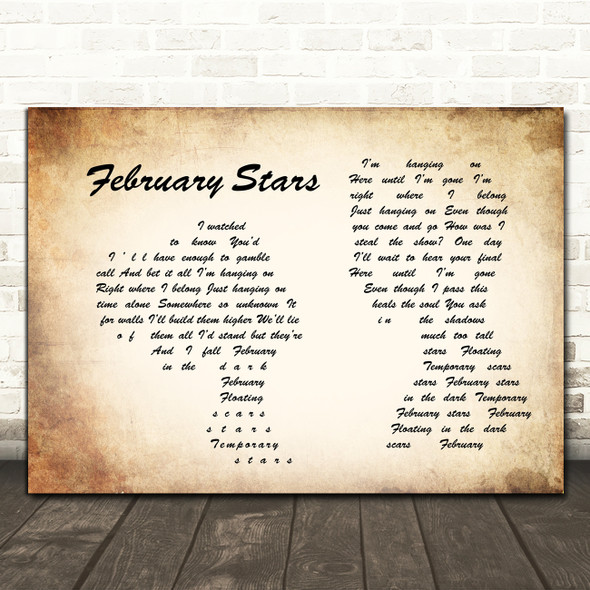 February Stars
I watched
to know You'd
I'll have enough to gamble
call And bet it all I'm hanging on
Right where I belong Just hanging on
time alone Somewhere so unknown It
for walls I'll build them higher We'll lie
of them all I'd stand but they're
And I fall February
in the dark
February
Floating
scars
stars
Temporary
stars
I'm hanging on
Here until I'm gone I'm
right where I belong
Just hanging on Even though
you come and go How was I
steal the show? One day
I'll wait to hear your final
Here until I'm gone
Even though I pass this
heals the soul You ask
in the shadows
much too tall
stars Floating
Temporary scars
stars February stars
in the dark Temporary
February stars February
Floating in the dark
scars February